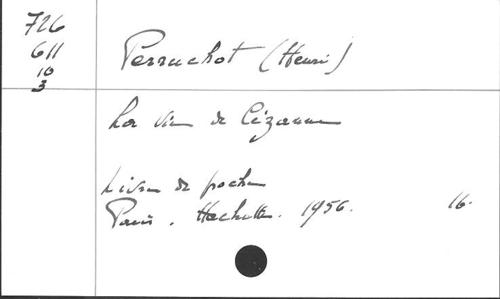 726
611
10
3
Perruchot (Henri)
La vie de Cézanne
Livre de poche
Paris. Hachette. 1956. 16.